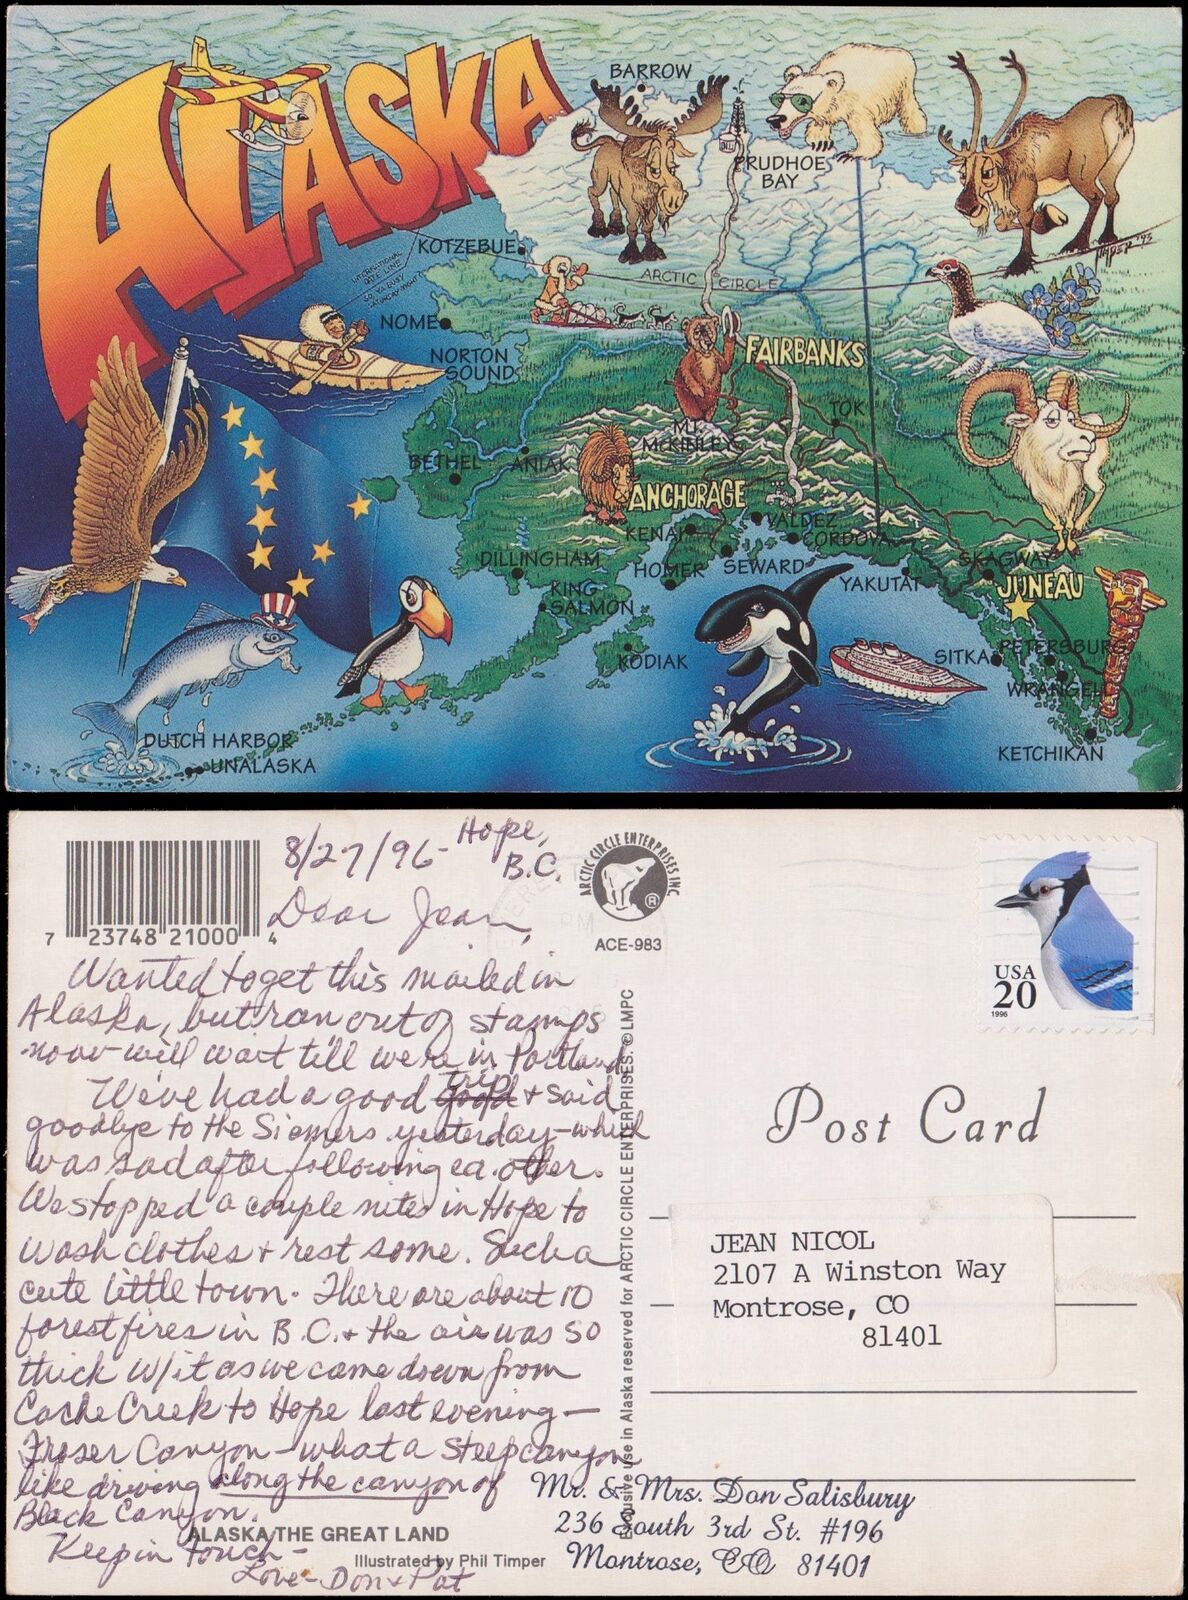 ALASKA
BARROW
PRUDHOE
BAY
KOTZEBUE
INTERNATIONAL
DATE LINE
ARCTIC CIRCLE
TIMPER '93
NOME
NORTON
SOUND
FAIRBANKS
TOK
MT.
MCKINLEY
BETHEL
ANIAK
ANCHORAGE
VALDEZ
KENAI
CORDOVA
DILLINGHAM
HOMER
SEWARD
SKAGWAY
YAKUTAT
JUNEAU
KING
SALMON
KODIAK
SITKA
PETERSBURG
WRANGELL
DUTCH HARBOR
UNALASKA
KETCHIKAN
7 23748 21000 4
8/27/96- Hope,
B.C.
Dear Jean,
Wanted to get this mailed in
Alaska, but ran out of stamps
now will wait till we're in Portland
We've had a good trip & said
goodbye to the Siemers yesterday-which
was sad after following ea. other.
We stopped a couple nites in Hope to
wash clothes & rest some. Such a
cute little town. There are about 10
forest fires in B.C. & the air was so
thick w/it as we came down from
Cache Creek to Hope last evening—
Fraser Canyon-what a steep canyon
like driving along the canyon of
Black Canyon.
Keep in touch-
Love- Don & Pat
ALASKA/THE GREAT LAND
Illustrated by Phil Timper
ARCTIC CIRCLE ENTERPRISES INC.
®
ACE-983
PM
Exclusive use in Alaska reserved for ARCTIC CIRCLE ENTERPRISES. © LMPC
USA
20
1996
Post Card
JEAN NICOL
2107 A Winston Way
Montrose, CO
81401
Mr. & Mrs. Don Salisbury
236 South 3rd St. #196
Montrose, CO 81401